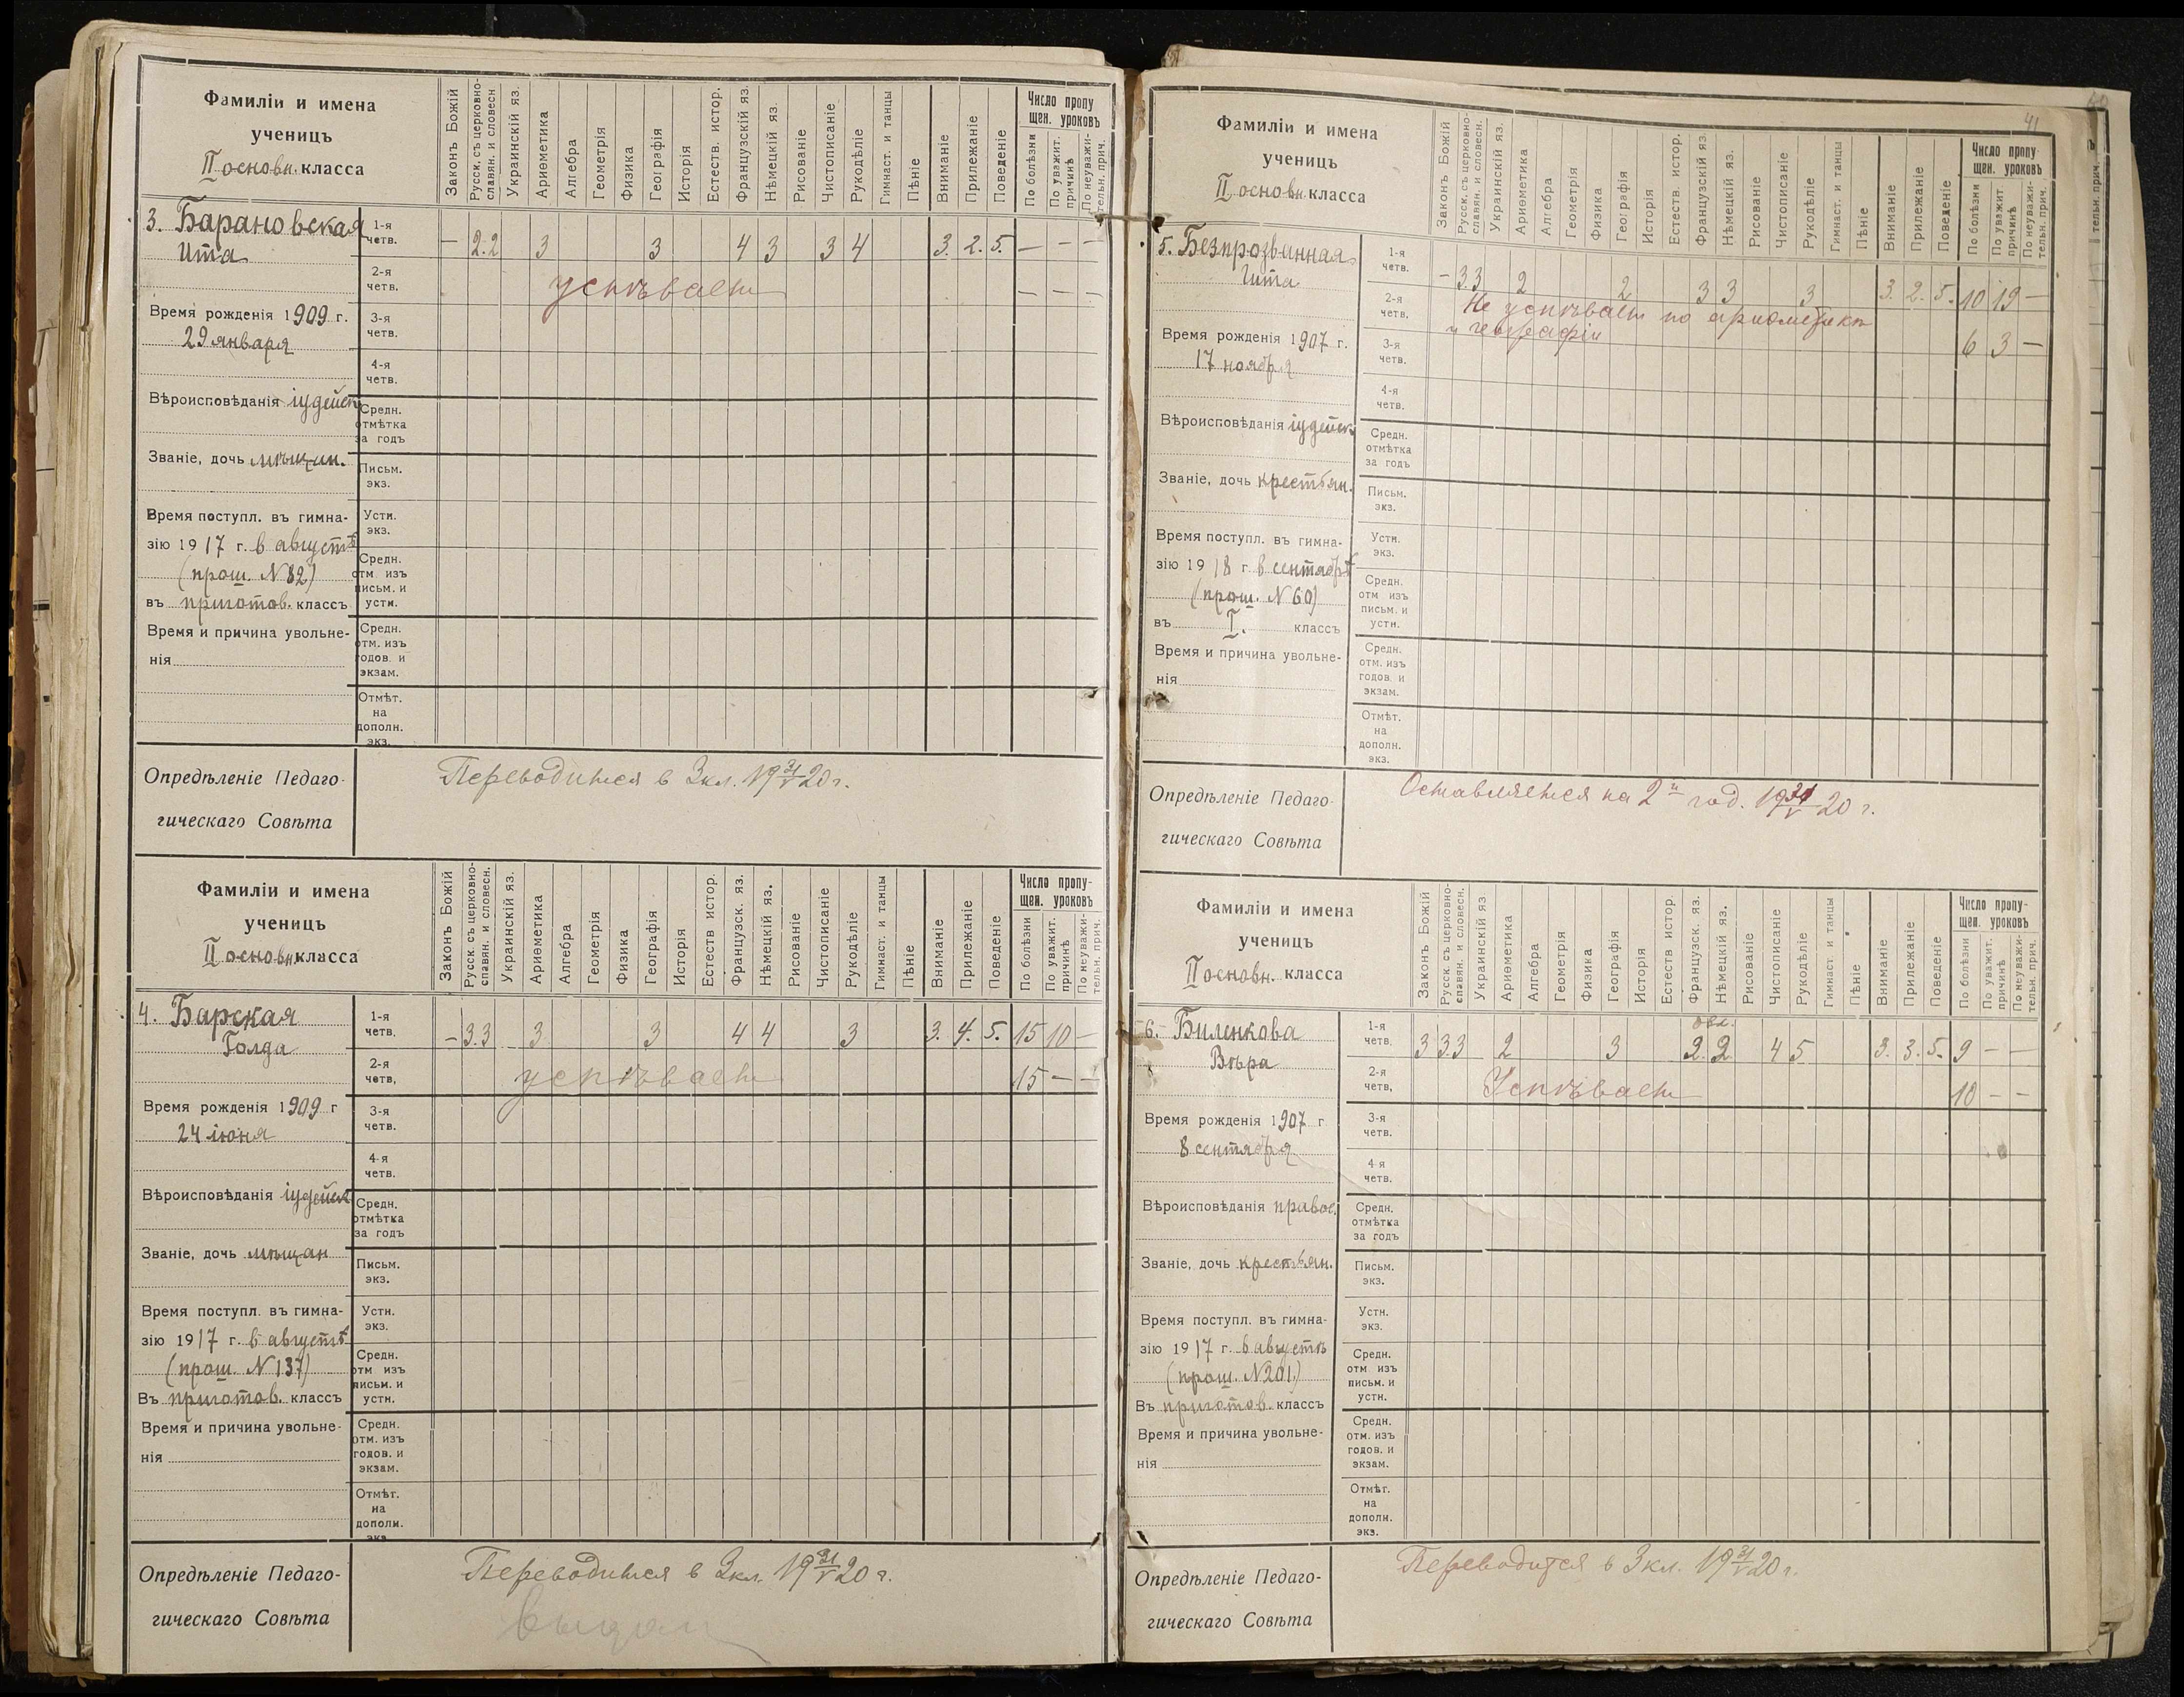 Фамиліи и имена
ученицъ
II основн. класса
Законъ Божій
Русск. съ церковно-
славян. и словесн
Украинскій яз.
Ариѳметика
Алгебра
Геометрія
Физика
Географія
Исторія
Естеств. истор.
Французскій яз.
Нѣмецкій яз.
Рисованіе
Чистописаніе
Рукодѣліе
Гимнаст. и танцы
Пѣніе
Вниманіе
Прилежаніе
Поведеніе
Число пропу
щен. уроковъ
По болѣзни
По уважит.
причинѣ
По неуважи-
тельн. прич.
3. Барановская
Ита
1-я
четв.
— 2.2 3 3 4 3 3 4 3. 2. 5. — — —
2-я
четв.
успѣвает
— — —
Время рожденія 1909 г.
29 января
3-я
четв.
4-я
четв.
Вѣроисповѣданія іудейск
Средн.
отмѣтка
за годъ
Званіе, дочь мѣщан.
Письм.
экз.
Время поступл. въ гимна-
зію 1917 г. в августѣ
(прош. N 82)
въ приготов. классъ
Устн.
экз.
Средн.
отм изъ
письм. и
устн.
Время и причина увольне-
нія
Средн.
отм. изъ
годов. и
экзам.
Отмѣт.
на
дополн.
экз.
Опредѣленіе Педаго-
гическаго Совѣта
Переводится в 3 кл. 19 31/V 20 г.
Фамиліи и имена
ученицъ
II основн. класса
Законъ Божій
Русск. съ церковно-
славян. и словесн.
Украинскій яз.
Ариѳметика
Алгебра
Геометрія
Физика
Географія
Исторія
Естеств истор.
Французск. яз.
Нѣмецкій яз.
Рисованіе
Чистописаніе
Рукодѣліе
Гимнаст. и танцы
Пѣніе
Вниманіе
Прилежаніе
Поведеніе
Число пропу-
щен. уроковъ
По болѣзни
По уважит.
причинѣ
По неуважи-
тельн. прич.
4. Барская
Голда
1-я
четв.
— 3.3 3 3 4 4 3 3. 4. 5. 15 10 —
2-я
четв,
успѣвает
15 — —
Время рожденія 1909 г
24 іюня
3-я
четв.
4-я
четв.
Вѣроисповѣданія іудейск
Средн.
отмѣтка
за годъ
Званіе, дочь мѣщан
Письм.
экз.
Время поступл. въ гимна-
зію 1917 г. в августѣ
(прош. N 137)
Въ приготов. классъ
Устн.
экз.
Средн.
отм изъ
письм. и
устн.
Время и причина увольне-
нія
Средн.
отм. изъ
годов. и
экзам.
Отмѣт.
на
дополн.
экз.
Опредѣленіе Педаго-
гическаго Совѣта
Переводится в 3 кл. 19 31/V 20 г.
41
Фамиліи и имена
ученицъ
II основн. класса
Законъ Божій
Русск. съ церковно-
славян. и словесн.
Украинскій яз.
Ариѳметика
Алгебра
Геометрія
Физика
Географія
Исторія
Естеств. истор.
Французскій яз.
Нѣмецкій яз.
Рисованіе
Чистописаніе
Рукодѣліе
Гимнаст. и танцы
Пѣніе
Вниманіе
Прилежаніе
Поведеніе
Число пропу-
щен. уроковъ
По болѣзни
По уважит
причинѣ
По неуважи-
тельн. прич.
тельн. прич.
5. Безпрозванная
Гита
1-я
четв.
— 3.3 2 2 3 3 3 3. 2. 5. 10 19 —
2-я
четв.
Не успѣвает по ариѳметикѣ
и географіи
6 3 —
Время рожденія 1907 г.
17 ноября
3-я
четв.
4-я
четв.
Вѣроисповѣданія іудейск
Средн.
отмѣтка
за годъ
Званіе, дочь крестьян.
Письм.
экз.
Время поступл. въ гимна-
зію 1918 г. в сентябрѣ
(прош. N 60)
въ I. классъ
Устн.
экз.
Средн.
отм изъ
письм. и
устн.
Время и причина увольне-
нія
Средн.
отм. изъ
годов. и
экзам.
Отмѣт.
на
дополн.
экз.
Опредѣленіе Педаго-
гическаго Совѣта
Оставляется на 2й год. 19 31/V 20 г.
Фамиліи и имена
ученицъ
II основн. класса
Законъ Божій
Русск. съ церковно-
славян. и словесн.
Украинскій яз
Ариѳметика
Алгебра
Геометрія
Физика
Географія
Исторія
Естеств истор.
Французск. яз.
Нѣмецкій яз.
Рисованіе
Чистописаніе
Рукодѣліе
Гимнаст и танцы
Пѣніе
Вниманіе
Прилежаніе
Поведеніе
Число пропу-
щен. уроковъ
По болѣзни
По уважит.
причинѣ
По неуважи-
тельн. прич.
6. Биленкова
Вѣра
1-я
четв.
3 3.3 2 3 2. 2 4 5 3. 3. 5. 9 — —
2-я
четв,
Успѣвает
10 — —
Время рожденія 1907 г
8 сентября
3-я
четв.
4-я
четв.
Вѣроисповѣданія правос.
Средн.
отмѣтка
за годъ
Званіе, дочь крестьян.
Письм.
экз.
Время поступл. въ гимна-
зію 1917 г. в августѣ
(прош. N 201.)
Въ приготов. классъ
Устн.
экз.
Средн.
отм изъ
письм. и
устн.
Время и причина увольне-
нія
Средн.
отм. изъ
годов. и
экзам.
Отмѣт.
на
дополн.
экз.
Опредѣленіе Педаго-
гическаго Совѣта
Переводится в 3 кл. 19 31/V 20 г.